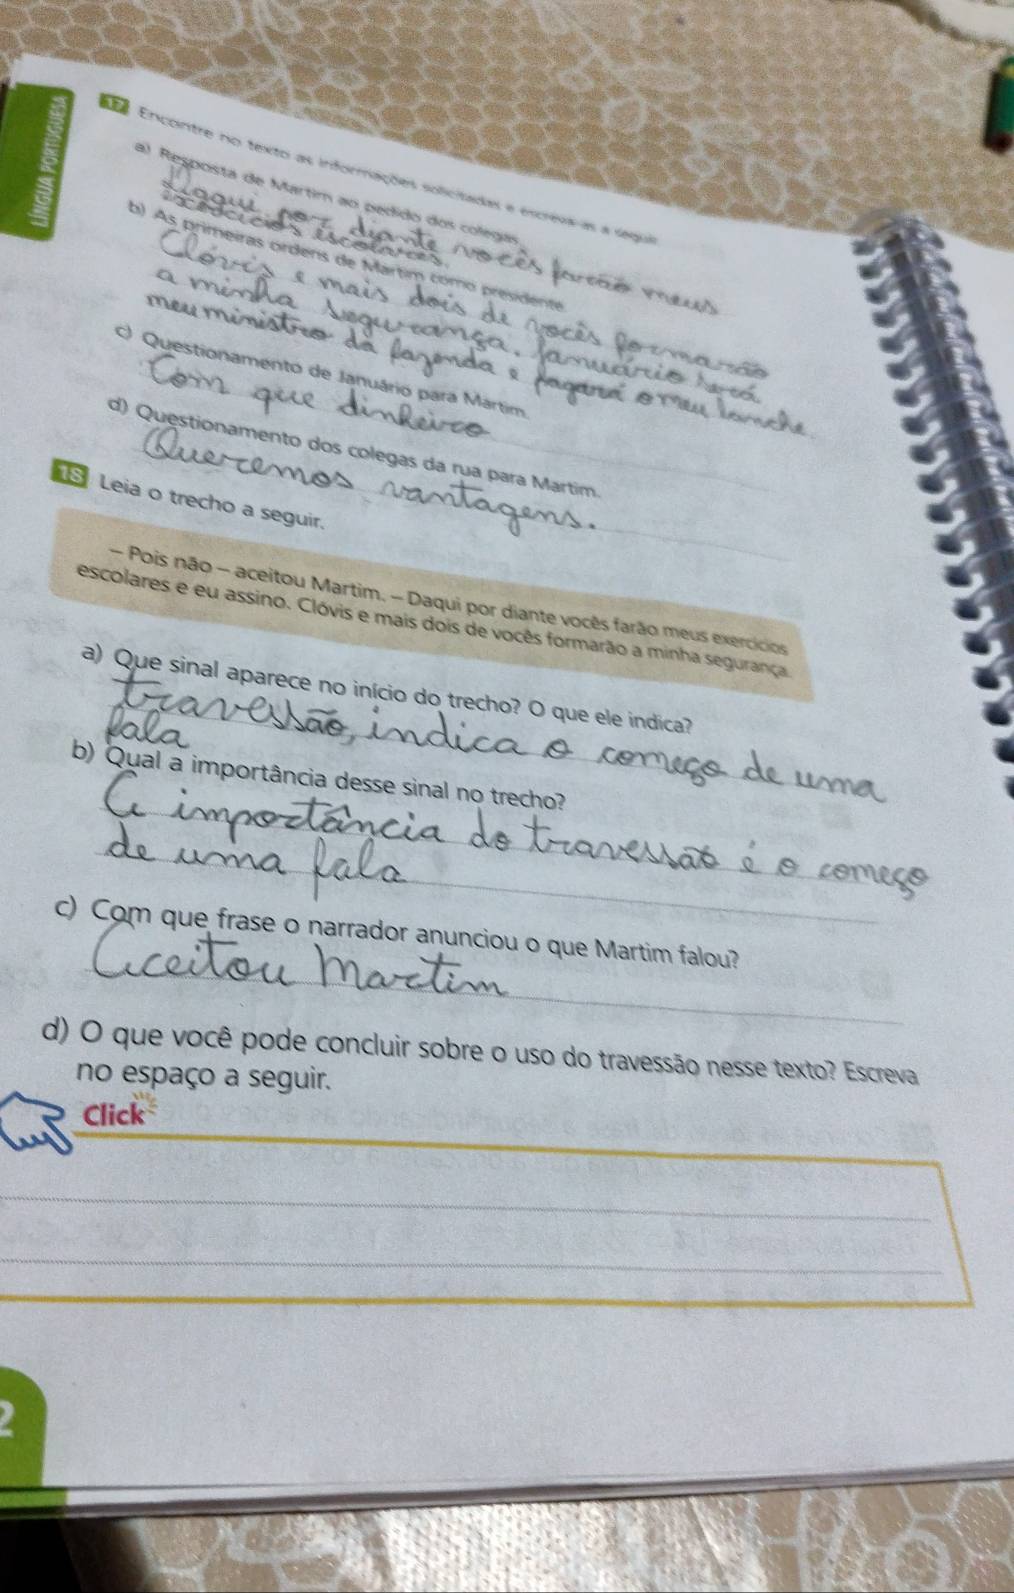 LÍNGUA PORTUGUESA
17 Encontre no texto as informações solicitadas e escreva-as a seguir.
a) Resposta de Martim ao pedido dos colegas.
Daqui por diante vocês farão meus
exercícios escolares.
b) As primeiras ordens de Martim como presidente
Clóvis e mais dois de vocês formarão
a minha segurança. Januário será
meu ministro da fazenda e pagará o meu lanche.
c) Questionamento de Januário para Martim.
Com que dinheiro
d) Questionamento dos colegas da rua para Martim.
Queremos vantagens.
18 Leia o trecho a seguir.
– Pois não – aceitou Martim. – Daqui por diante vocês farão meus exercícios
escolares e eu assino. Clóvis e mais dois de vocês formarão a minha segurança.
a) Que sinal aparece no início do trecho? O que ele indica?
travessão, indica o começo de uma
fala
b) Qual a importância desse sinal no trecho?
A importância do travessão é o começo
de uma fala
c) Com que frase o narrador anunciou o que Martim falou?
Aceitou Martim
d) O que você pode concluir sobre o uso do travessão nesse texto? Escreva
no espaço a seguir.
Click
2